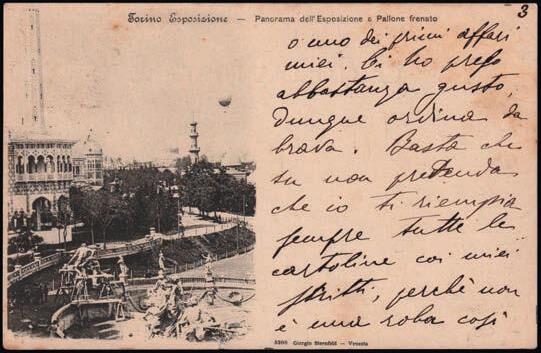 3
Torino Esposizione — Panorama dell'Esposizione e Pallone frenato
o uno dei primi affari
miei. Ci ho preso
abbastanza gusto,
dunque ordina da
brava. Basta che
tu non pretenda
che io ti riempia
sempre tutte le
cartoline coi miei
scritti, perchè non
è una roba così
5306 Giorgio Sternfeld — Venezia